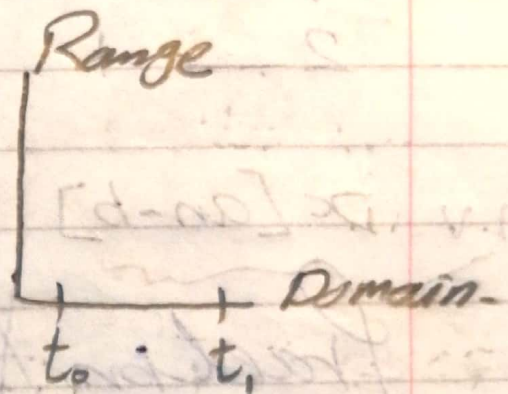 Range
Domain-
t₀ t₁